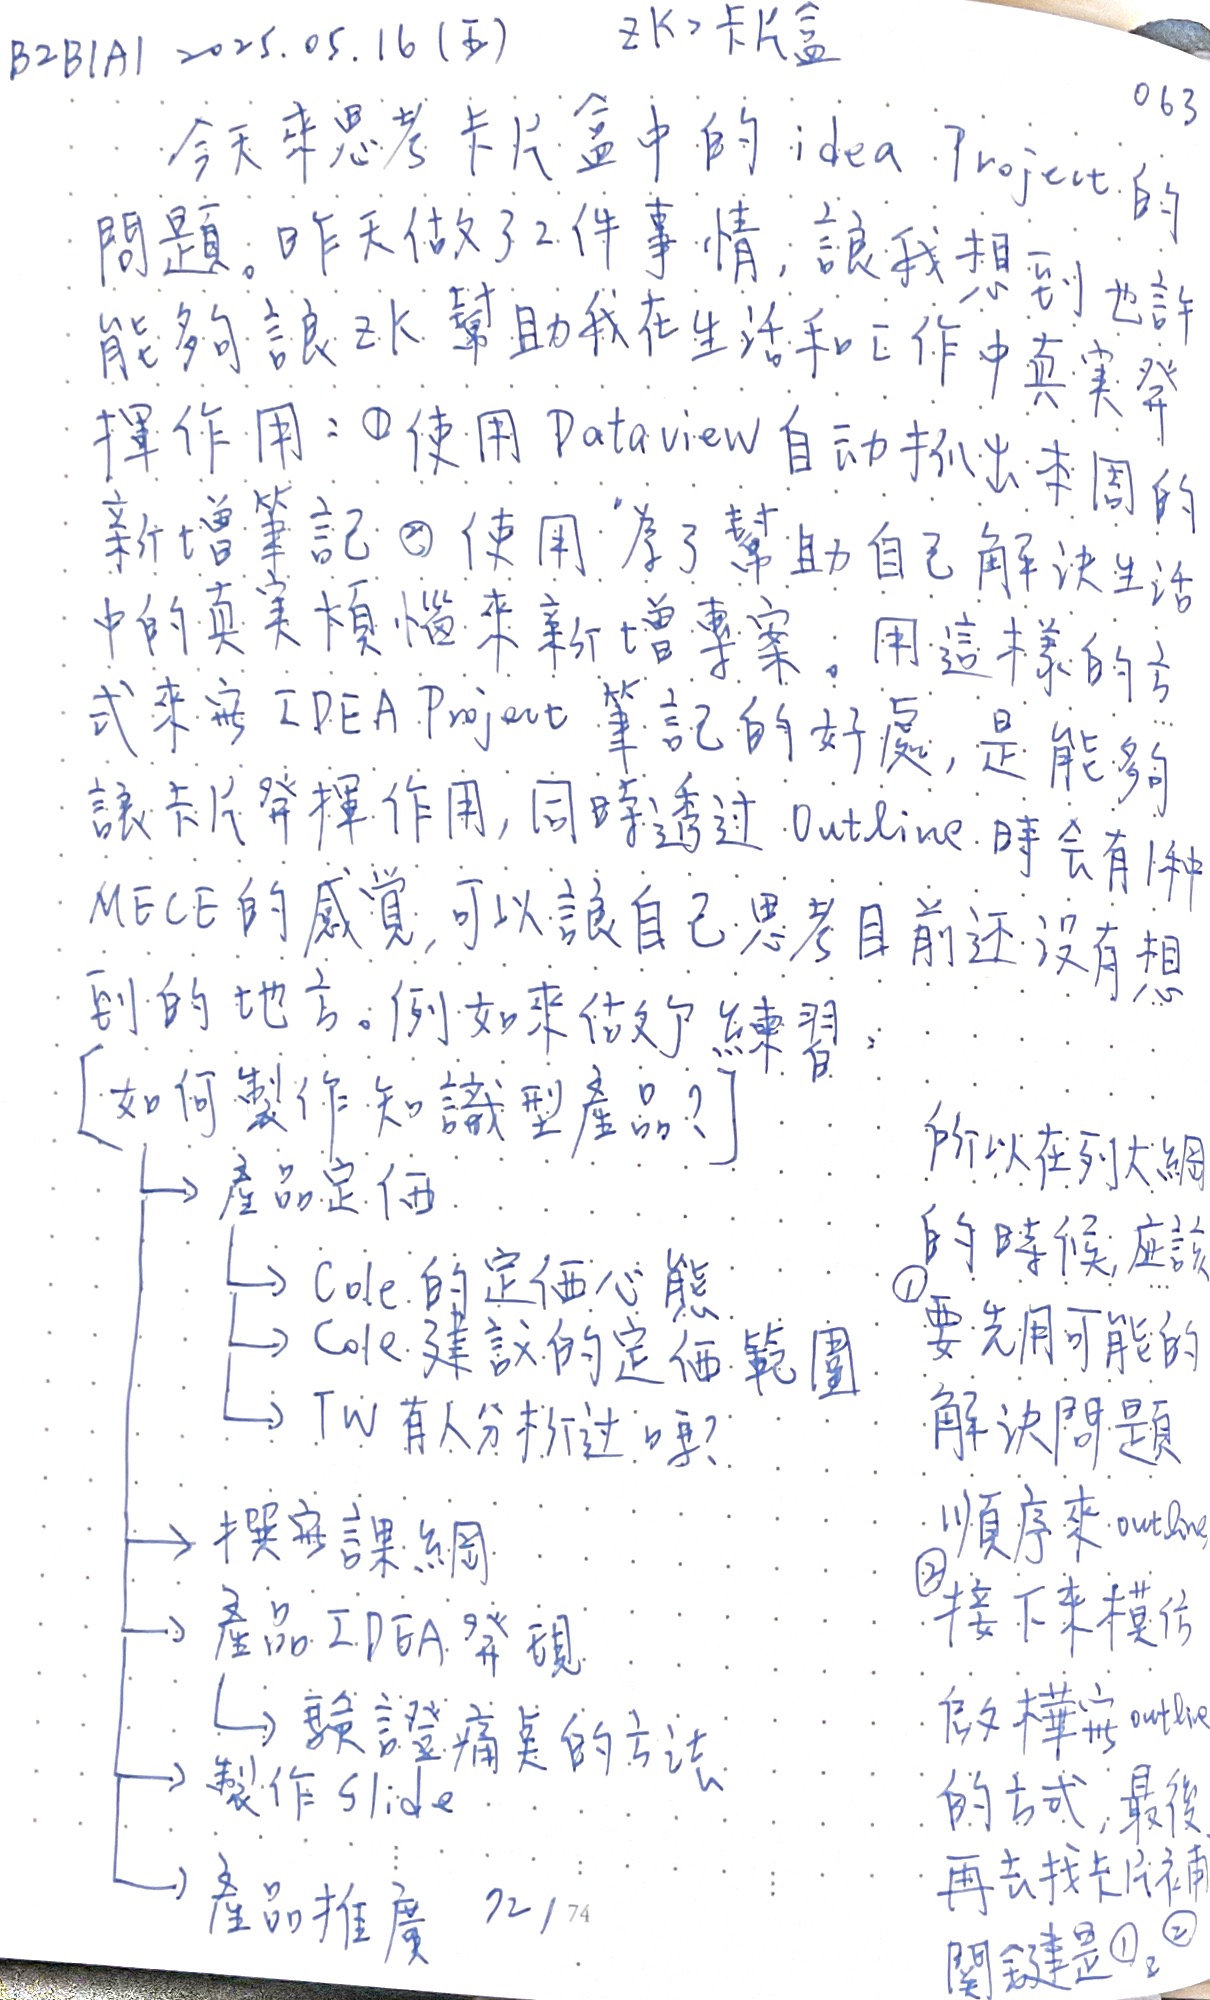 B2B1A1 2025.05.16(五) ZK>卡片盒
063
今天來思考卡片盒中的 idea Project 的
問題。昨天做了2件事情,讓我想到也許
能夠讓ZK幫助我在生活和工作中真実發
揮作用:①使用 Dataview 自动抓出本周的
新增筆記②使用"為了幫助自己解決生活
中的真実煩惱來新增專案。用這樣的方
式來寫 IDEA Project 筆記的好處,是能夠
讓卡片發揮作用,同時透过 Outline 時会有1种
MECE的感覺,可以讓自己思考目前还没有想
到的地方。例如來做个練習:
[如何製作知識型產品?]
→產品定価
→Cole的定価心態
→Cole建議的定価範圍
→TW有人分析过嗎?
→撰寫課綱
→產品IDEA發現
→驗證痛点的方法
→製作 Slide
→產品推廣
所以在列大綱
的時候,应該
①要先用可能的
解決問題
順序來outline,
②接下來模仿
做樺寫outline
的方式,最後
再去找卡片補
関鍵是①、②
72/74